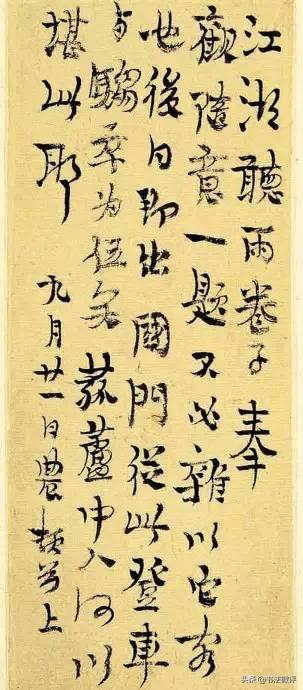 江湖聽雨卷子奉
觀隨意一題不必雜以它客
也後日即出國門從此登車
与騶卒为伍矣菰蘆中人何以
堪此耶 九月廿一日農頓首上
头条 @书法微评